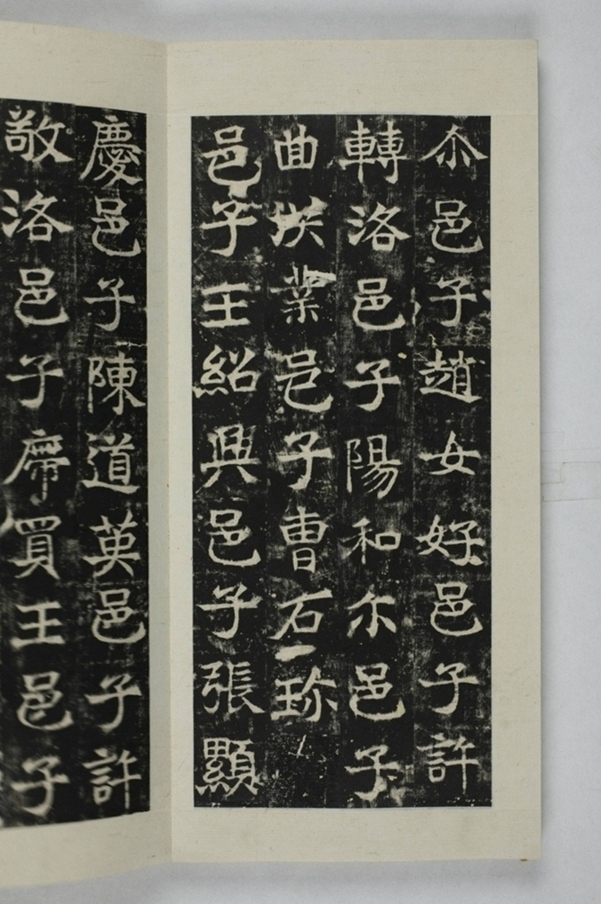 尒邑子趙女好邑子許
轉洛邑子陽和尒邑子
曲埃業邑子曹石珎
邑子王紹興邑子張顯
慶邑子陳道英邑子許
敬洛邑子席買王邑子